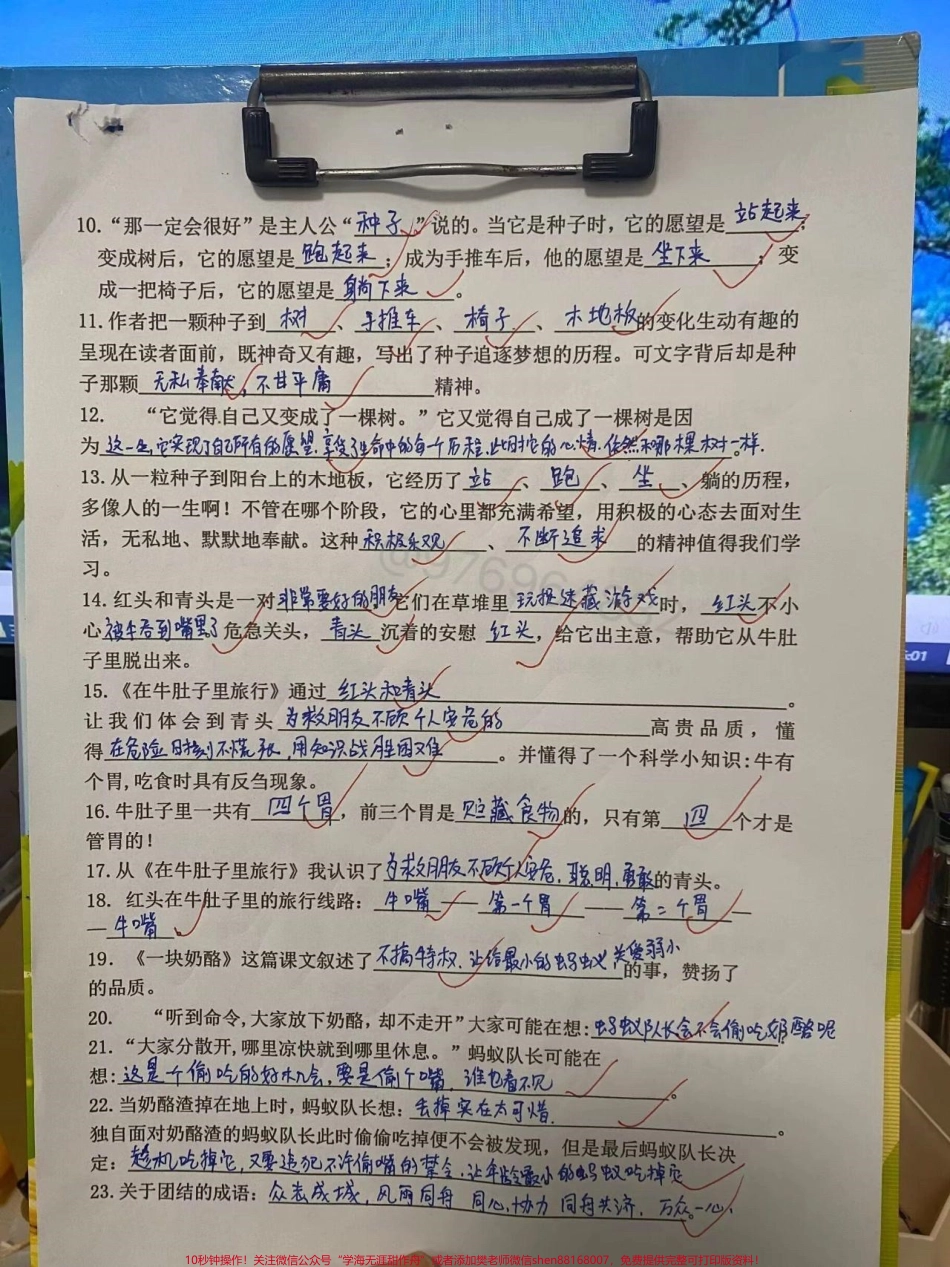 10.“那一定会很好”是主人公“种子”说的。当它是种子时，它的愿望是 站起来；
变成树后，它的愿望是 跑起来；成为手推车后，他的愿望是 坐下来；变
成一把椅子后，它的愿望是 躺下来。
11.作者把一颗种子到 树、手推车、椅子、木地板的变化生动有趣的
呈现在读者面前，既神奇又有趣，写出了种子追逐梦想的历程。可文字背后却是种
子那颗 无私奉献，不甘平庸 精神。
12. “它觉得自己又变成了一棵树。”它又觉得自己成了一棵树是因
为 这一生，它实现了自己所有的愿望，享受了生命中的每一个历程，此时它的心情，依然和哪棵树一样.
13.从一粒种子到阳台上的木地板，它经历了 站、跑、坐、躺的历程，
多像人的一生啊！不管在哪个阶段，它的心里都充满希望，用积极的心态去面对生
活，无私地、默默地奉献。这种 积极乐观、不断追求 的精神值得我们学
习。
14.红头和青头是一对 非常要好的朋友它们在草堆里 玩捉迷藏游戏时，红头不小
心 被牛吞到嘴里了危急关头，青头 沉着的安慰 红头，给它出主意，帮助它从牛肚
子里脱出来。
15.《在牛肚子里旅行》通过 红头和青头。
让我们体会到青头 为救朋友不顾个人安危的 高贵品质，懂
得 在危险时刻不慌张，用知识战胜困难。并懂得了一个科学小知识：牛有
个胃，吃食时具有反刍现象。
16.牛肚子里一共有 四个胃，前三个胃是 贮藏食物的，只有第 四 个才是
管胃的！
17.从《在牛肚子里旅行》我认识了为救朋友不顾个人安危，聪明，勇敢的青头。
18. 红头在牛肚子里的旅行线路：牛嘴——第一个胃——第二个胃—
—牛嘴.
19. 《一块奶酪》这篇课文叙述了 不搞特权、让给最小的蚂蚁 关爱弱小 的事，赞扬了
的品质。
20. “听到命令，大家放下奶酪，却不走开”大家可能在想：蚂蚁队长会不会偷吃奶酪呢
21.“大家分散开，哪里凉快就到哪里休息。”蚂蚁队长可能在
想：这是个偷吃的好机会，要是偷个嘴，谁也看不见。
22.当奶酪渣掉在地上时，蚂蚁队长想：丢掉实在太可惜.。
独自面对奶酪渣的蚂蚁队长此时偷偷吃掉便不会被发现，但是最后蚂蚁队长决
定：趁机吃掉它，又要违犯不许偷嘴的禁令，让年龄最小的蚂蚁吃掉它
23.关于团结的成语：众志成城，风雨同舟 同心协力 同舟共济，万众一心、
10秒钟操作！关注微信公众号“学海无涯甜作舟”或者添加樊老师微信shen88168007，免费提供完整可打印版资料！